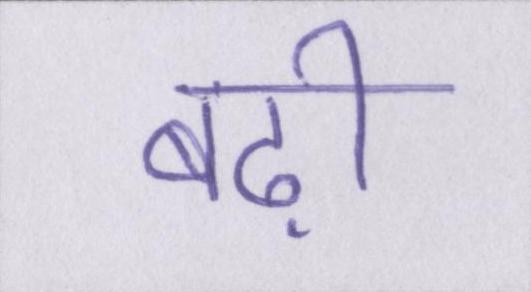 बढ़ी